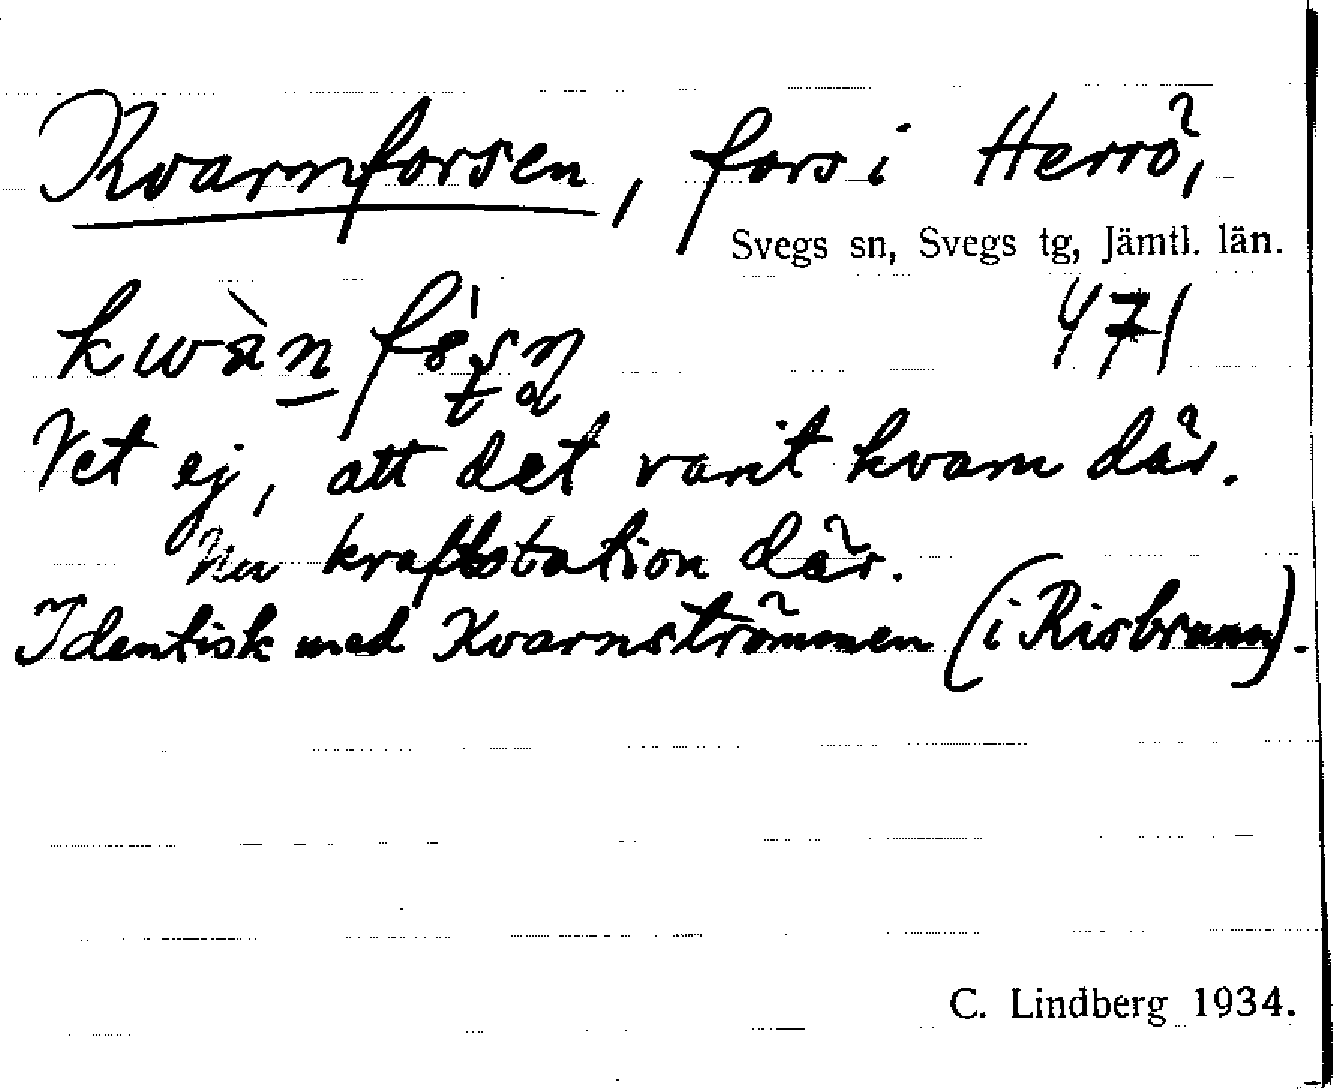 Kvarnforsen, fors i Herrö,
Svegs sn, Svegs tg, Jämtl. län.
471
Vet ej, att det varit kvarn där.
Nu kraftstation där.
Identisk med Kvarnströmmen (i Risbrunn).
C. Lindberg 1934.